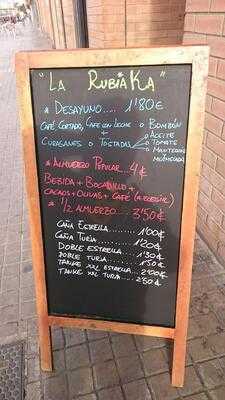 "LA RUBIAKA"
* DESAYUNO.... 1'80€
CAFÉ, CORTADO, CAFÉ CON LECHE o BOMBÓN
+
CURASANES o TOSTADAS
ACEITE
TOMATE
MANTEQUILLA
MERMELADA
* ALMUERZO POPULAR... 4€
BEBIDA + BOCADILLO +
CACAOS + OLIVAS + CAFÉ (A ELEGIR)
* 1/2 ALMUERZO.... 3'50€
CAÑA ESTRELLA....... 1'00€
CAÑA TURIA....... 1'20€
DOBLE ESTRELLA.... 1'30€
DOBLE TURIA....... 1'50€
TANKE XXL ESTRELLA... 2'00€
TANKE XXL TURIA...... 2'80€